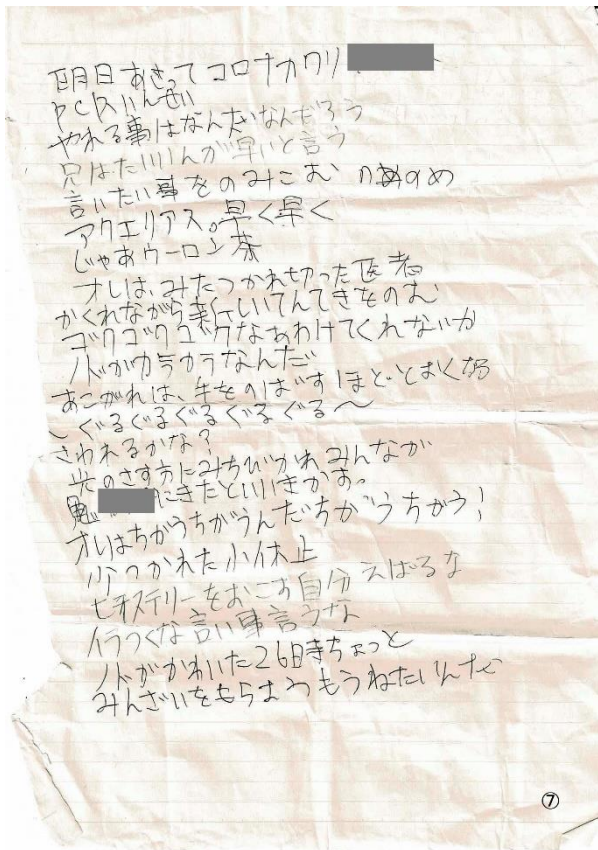 明日あさってコロナカワリ
PCRけんせい
やれる事はなんだいなんだろう
兄はたいいんが早いと言う
言いたい事をのみこむ のめのめ
アクエリアス。早く早く
じゃあウーロン茶
オレは、みたつかれ切った医者
かくれながら美しいてんてきをのむ
ゴクゴクゴクなあわけてくれないか
ノドがカラカラなんだ
あこがれは、手をのばすほどとおくなる
〜ぐるぐるぐるぐるぐる〜
さわれるかな?
光のさす方にみちびかれみんなが
鬼 にきたといいきかす。
オレはちがうちがうんだちがうちがう!
少つかれた小休止
ヒステリーをおこす自分えばるな
イラつくな言い事言うな
ノドがかわいた26日寺ちょっと
みんざいをもらおうもうねたいんだ
⑦